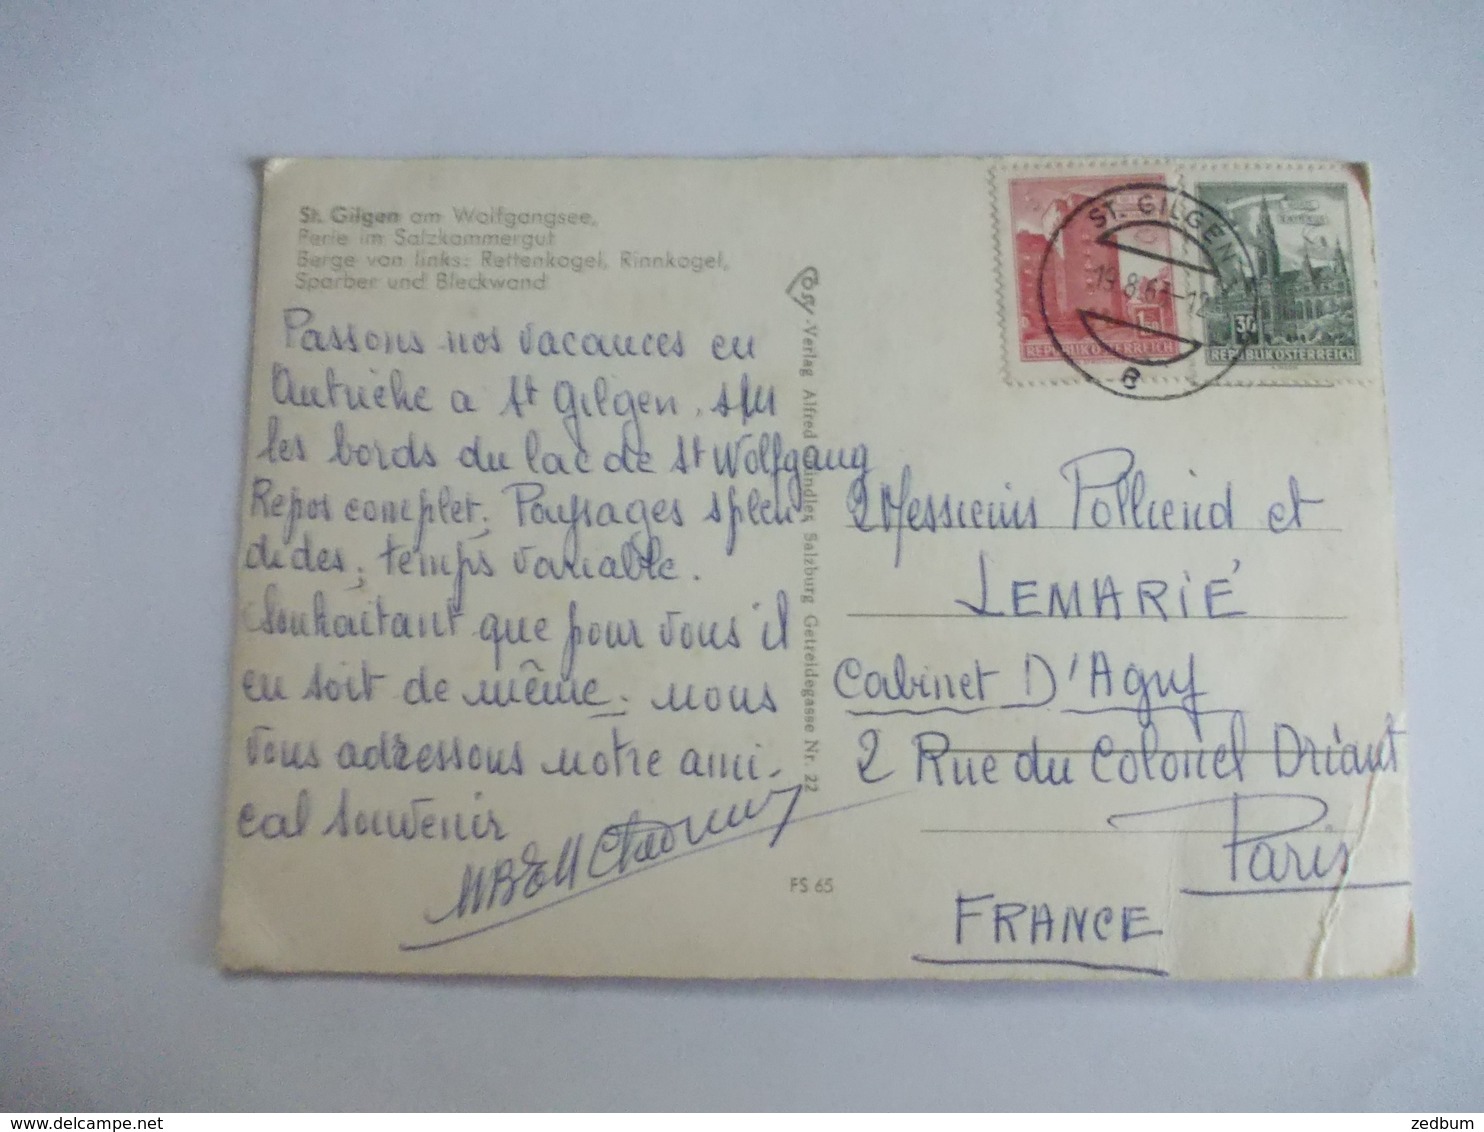 St. Gilgen am Wolfgangsee,
Perle im Salzkammergut
Berge von links: Rettenkogel, Rinnkogel,
Sparber und Bleckwand
Passons nos vacances en
Autriche a St Gilgen. sur
les bords du lac de St Wolfgang
Repos complet, Paysages splen
dides, temps variable.
Souhaitant que pour vous il
en soit de même. nous
vous adressons notre ami-
cal souvenir
Cosy-Verlag Alfred Gründler, Salzburg Getreidegasse Nr. 22
FS 65
ST. GILGEN
19.8.63-12
B
1.50
REPUBLIK ÖSTERREICH
30
REPUBLIK ÖSTERREICH
Messieurs Polliend et
LEMARIÉ
Cabinet D'Aguy
2 Rue du Colonel Driant
Paris
FRANCE
zedbum